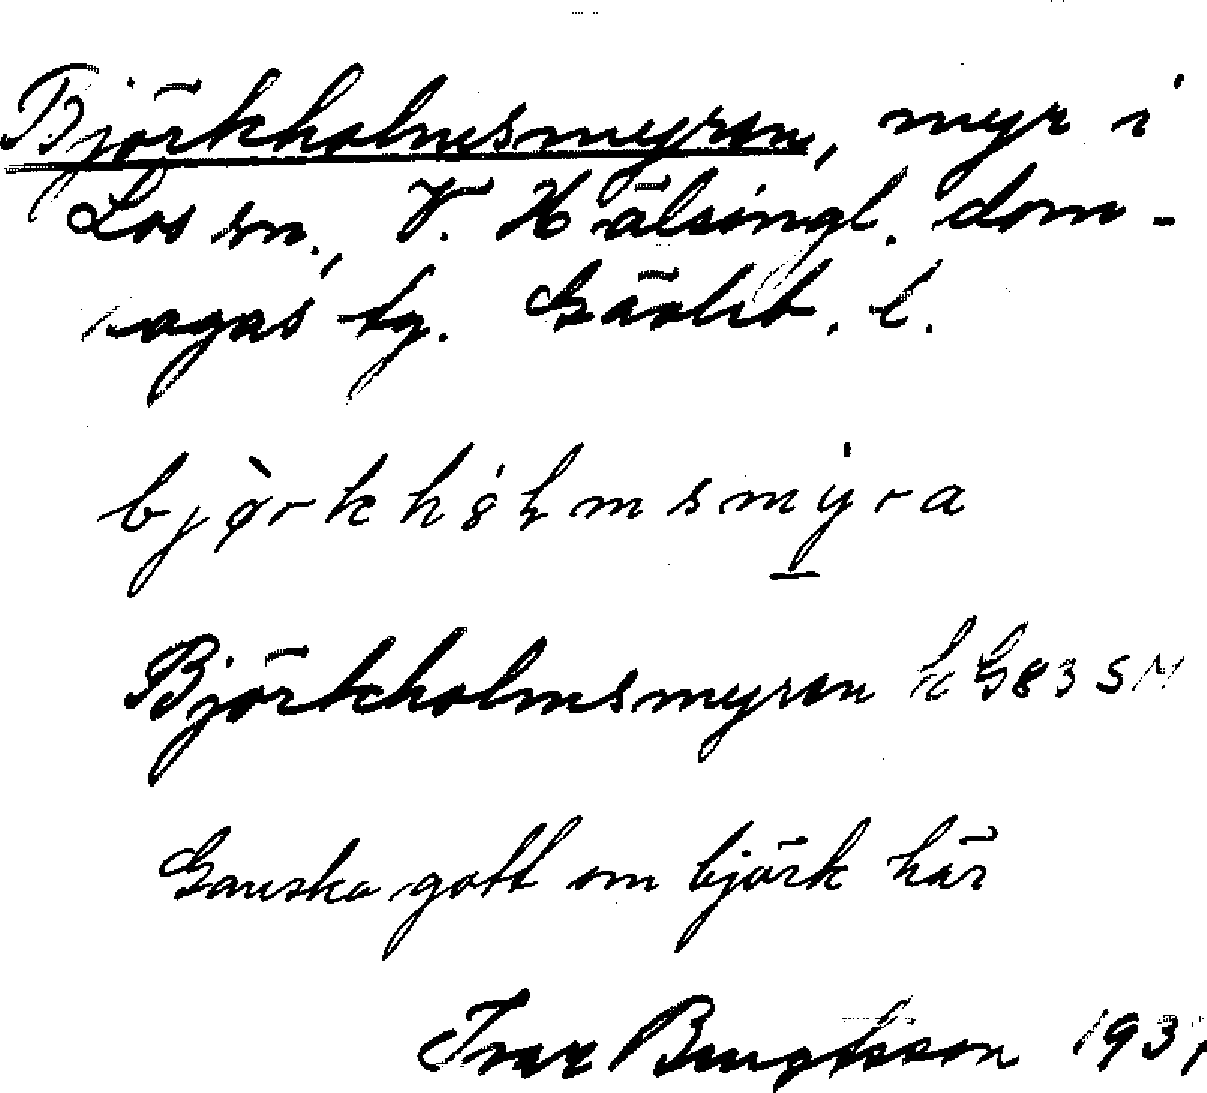 Björkholmsmyran, myr i
Los sn., V. Hälsingl. dom-
sagas tg. Gävleb. l.
bjø̀rkhólmsmýra
Björkholmsmyran k G83 SM
Ganska gott om björk här
Ivar Bengtsson 1931